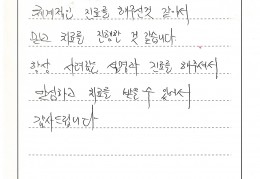 체계적인 진료를 해주신것 같아서
믿고 치료를 진행한 것 같습니다
항상 사려깊은 설명과 진료를 해주셔서
안심하고 치료를 받을 수 있어서
감사드립니다